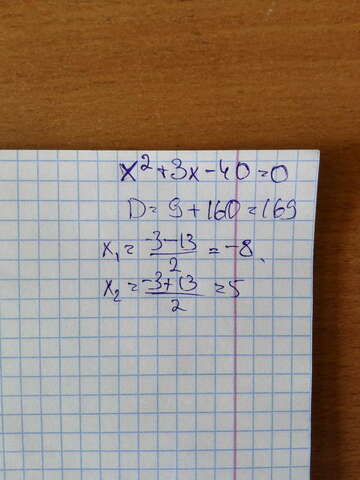 x²+3x-40=0
D=9+160=169
x₁=(-3-13)/2=-8.
x₂=(-3+13)/2=5